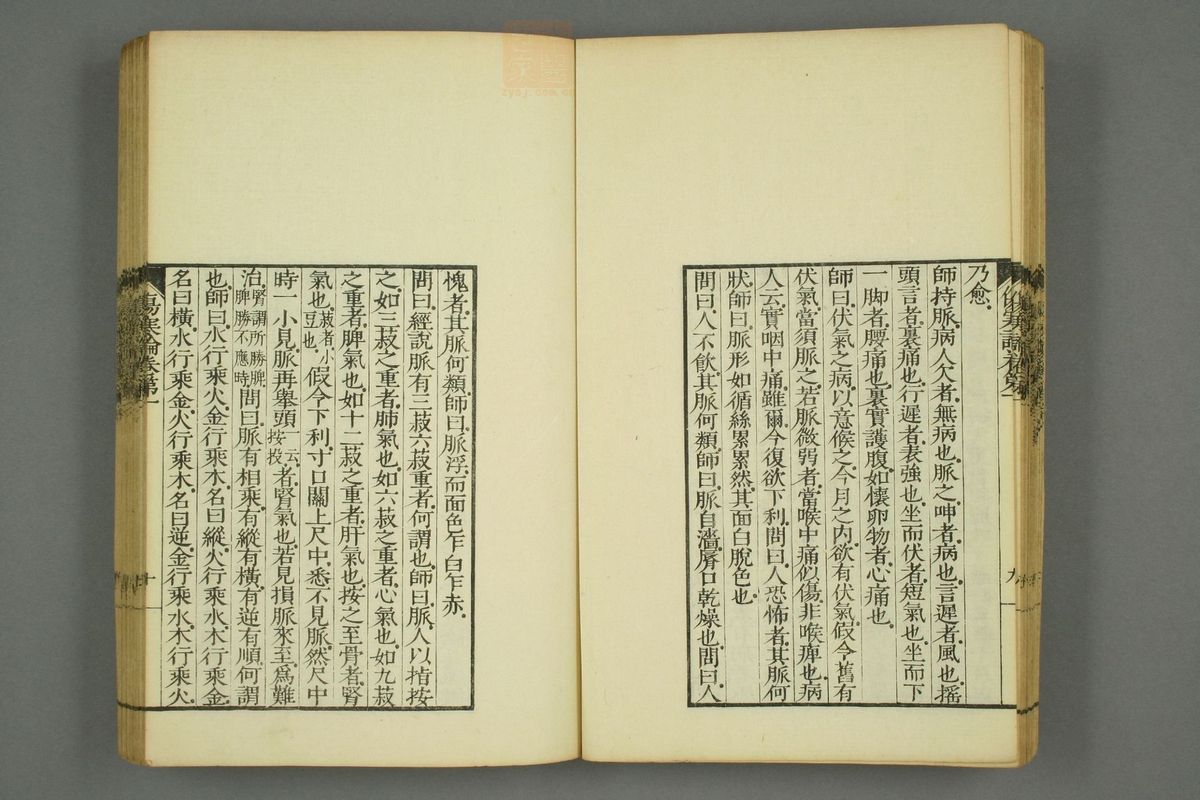 乃愈
師持脈病人欠者無病也脈之呻者病也言遲者風也搖
頭言者裏痛也行遲者表強也坐而伏者短氣也坐而下
一脚者腰痛也裏實護腹如懷卵物者心痛也
師曰伏氣之病以意候之今月之內欲有伏氣假令舊有
伏氣當須脈之若脈微弱者當喉中痛似傷非喉痺也病
人云實咽中痛雖爾今復欲下利問曰人恐怖者其脈何
狀師曰脈形如循絲累累然其面白脫色也
問曰人不飲其脈何類師曰脈自濇脣口乾燥也問曰人
傷寒論卷第一
九
愧者其脈何類師曰脈浮而面色乍白乍赤
問曰經說脈有三菽六菽重者何謂也師曰脈人以指按
之如三菽之重者肺氣也如六菽之重者心氣也如九菽
之重者脾氣也如十二菽之重者肝氣也按之至骨者腎
氣也菽者小豆也假令下利寸口關上尺中悉不見脈然尺中
時一小見脈再舉頭一云按投者腎氣也若見損脈來至爲難
治腎謂所勝脾脾勝不應時問曰脈有相乘有縱有橫有逆有順何謂
也師曰水行乘火金行乘木名曰縱火行乘水木行乘金
名曰橫水行乘金火行乘木名曰逆金行乘水木行乘火
傷寒論卷第一
十
zysj.com.cn